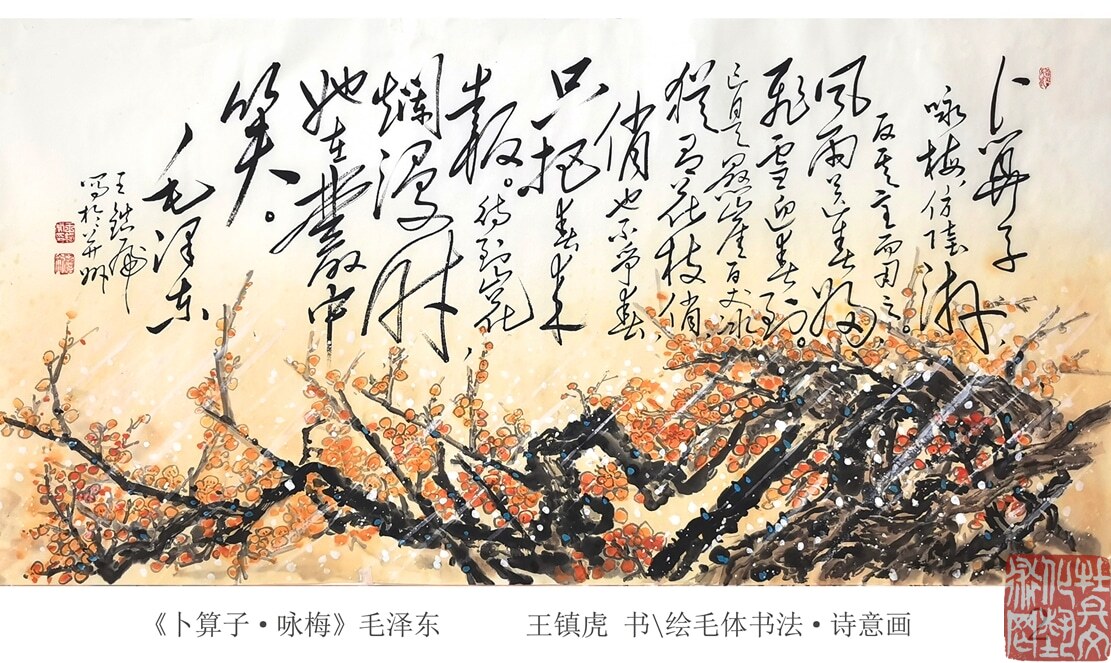 卜算子
咏梅仿陸游
反其意而用之。
风雨送春归
飛雪迎春到。
已是悬崖百丈冰
猶有花枝俏
俏也不争春
只把春来
報。待到山花
爛漫时
她在叢中
笑。
毛泽东
王镇虎
写於并州
《卜算子•咏梅》毛泽东
王镇虎 书\绘毛体书法•诗意画